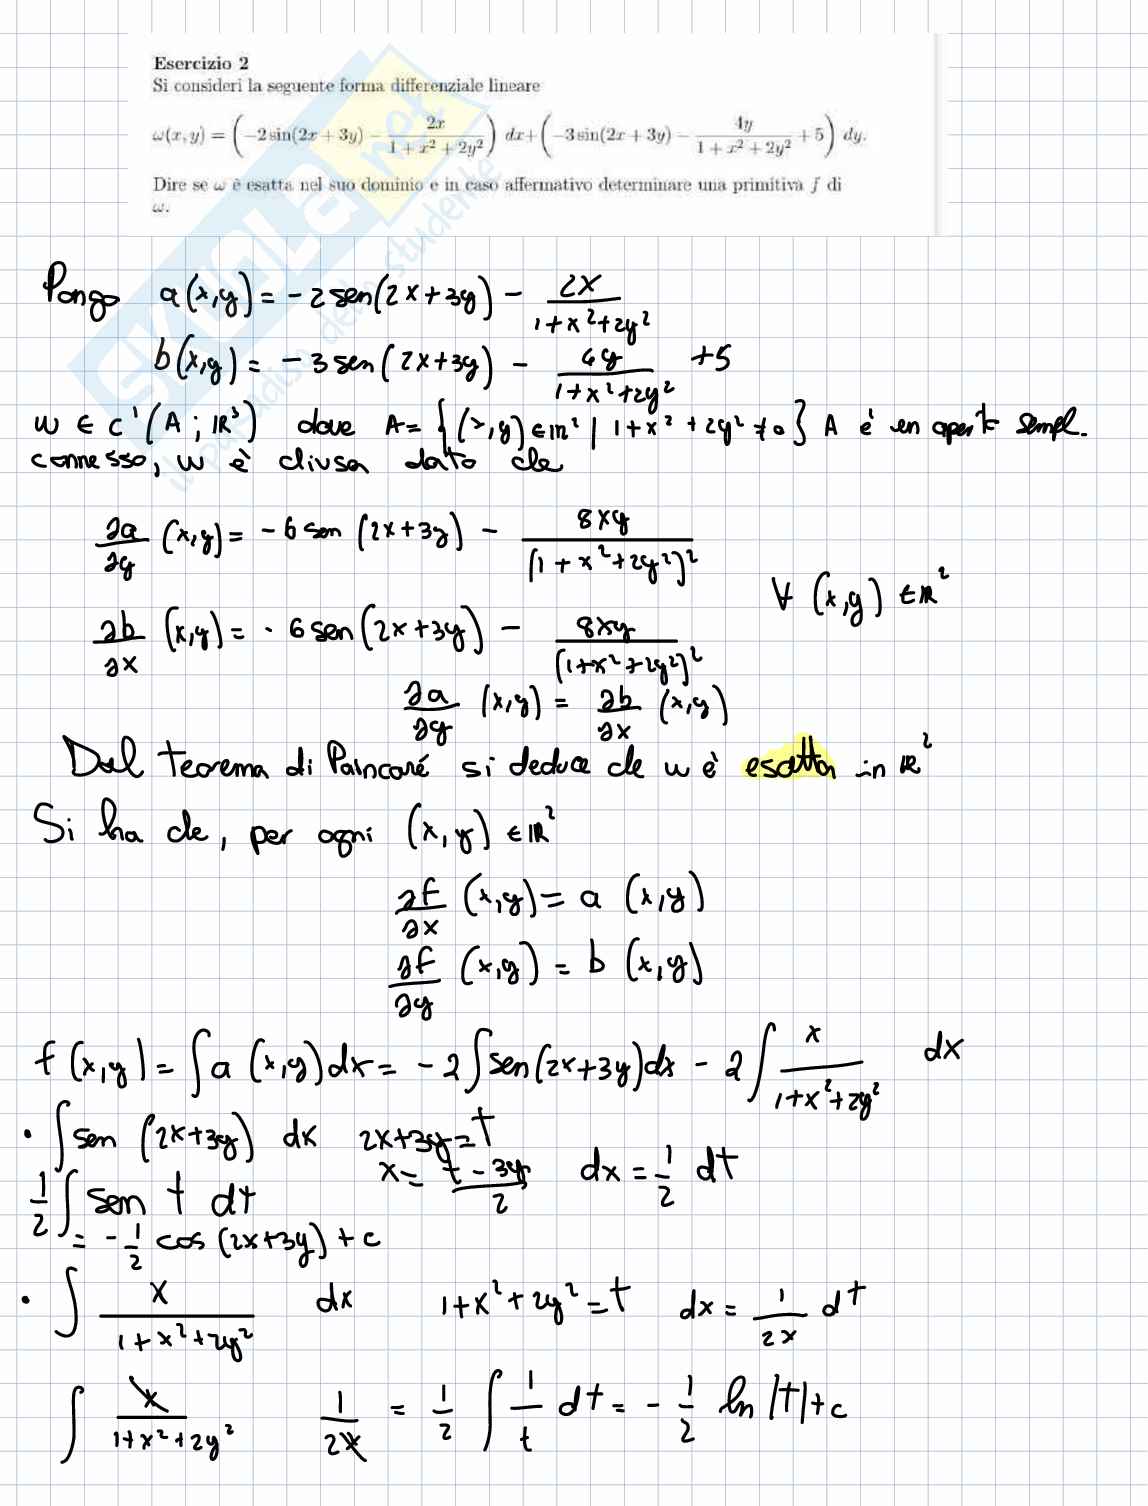 Esercizio 2
Si consideri la seguente forma differenziale lineare
ω(x, y) = (−2 sin(2x + 3y) − 2x / (1 + x² + 2y²)) dx + (−3 sin(2x + 3y) − 4y / (1 + x² + 2y²) + 5) dy.
Dire se ω è esatta nel suo dominio e in caso affermativo determinare una primitiva f di
ω.
SKUOLA.net
il paradiso dello studente
Pongo a(x,y) = -2 sen(2x+3y) - 2x / (1+x²+2y²)
b(x,y) = -3 sen(2x+3y) - 4y / (1+x²+2y²) +5
w ∈ c¹(A; ℝ³) dove A = {(x,y) ∈ ℝ² | 1+x²+2y² ≠ 0} A è un aperto sempl.
connesso, w è chiusa dato che
∂a/∂y (x,y) = -6 sen (2x+3y) - 8xy / (1+x²+2y²)²
∀ (x,y) ∈ ℝ²
∂b/∂x (x,y) = -6 sen(2x+3y) - 8xy / (1+x²+2y²)²
∂a/∂y (x,y) = ∂b/∂x (x,y)
Dal teorema di Paincaré si deduce che w è esatta in ℝ²
Si ha che, per ogni (x,y) ∈ ℝ²
∂f/∂x (x,y) = a (x,y)
∂f/∂y (x,y) = b (x,y)
f(x,y) = ∫a (x,y) dx = -2 ∫sen(2x+3y)dx - 2 ∫ x / (1+x²+2y²) dx
• ∫ sen (2x+3y) dx 2x+3y=t
x = (t-3y)/2 dx = 1/2 dt
1/2 ∫ sen t dt
= -1/2 cos (2x+3y) + c
• ∫ x / (1+x²+2y²) dx 1+x²+2y² = t dx = 1/2x dt
∫ x / (1+x²+2y²) 1/2x = 1/2 ∫ 1/t dt = -1/2 ln |t| + c